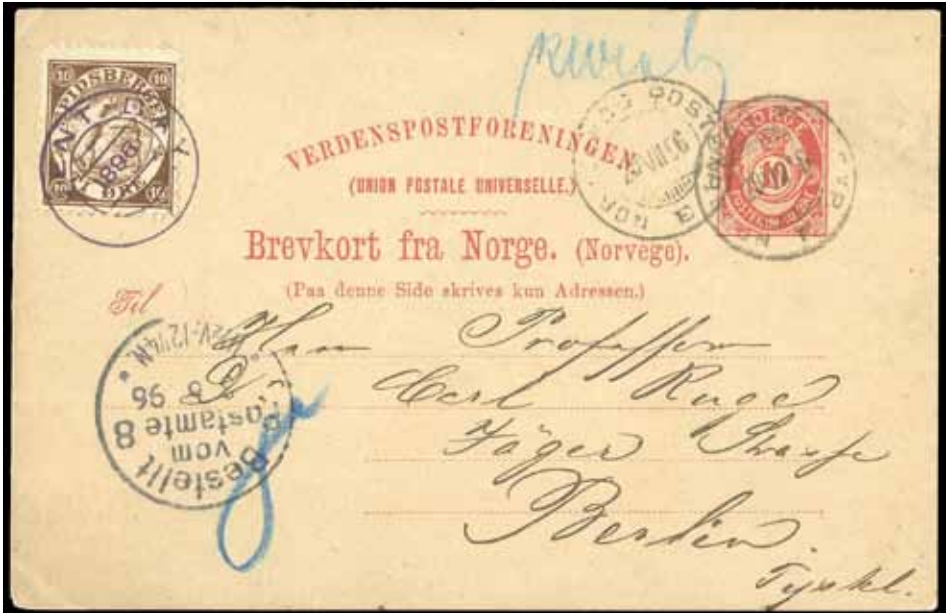 10 10
SPIDSBERGEN
10 ØRE 10
1896
VERDENSPOSTFORENINGEN
(UNION POSTALE UNIVERSELLE.)
Brevkort fra Norge. (Norvege).
(Paa denne Side skrives kun Adressen.)
NORGE
10
Til
Herr Professor
Dr. Carl Ruge
Jäger Strasse
Berlin.
Tyskl.
Bestellt
vom
Postamte 8
8 96